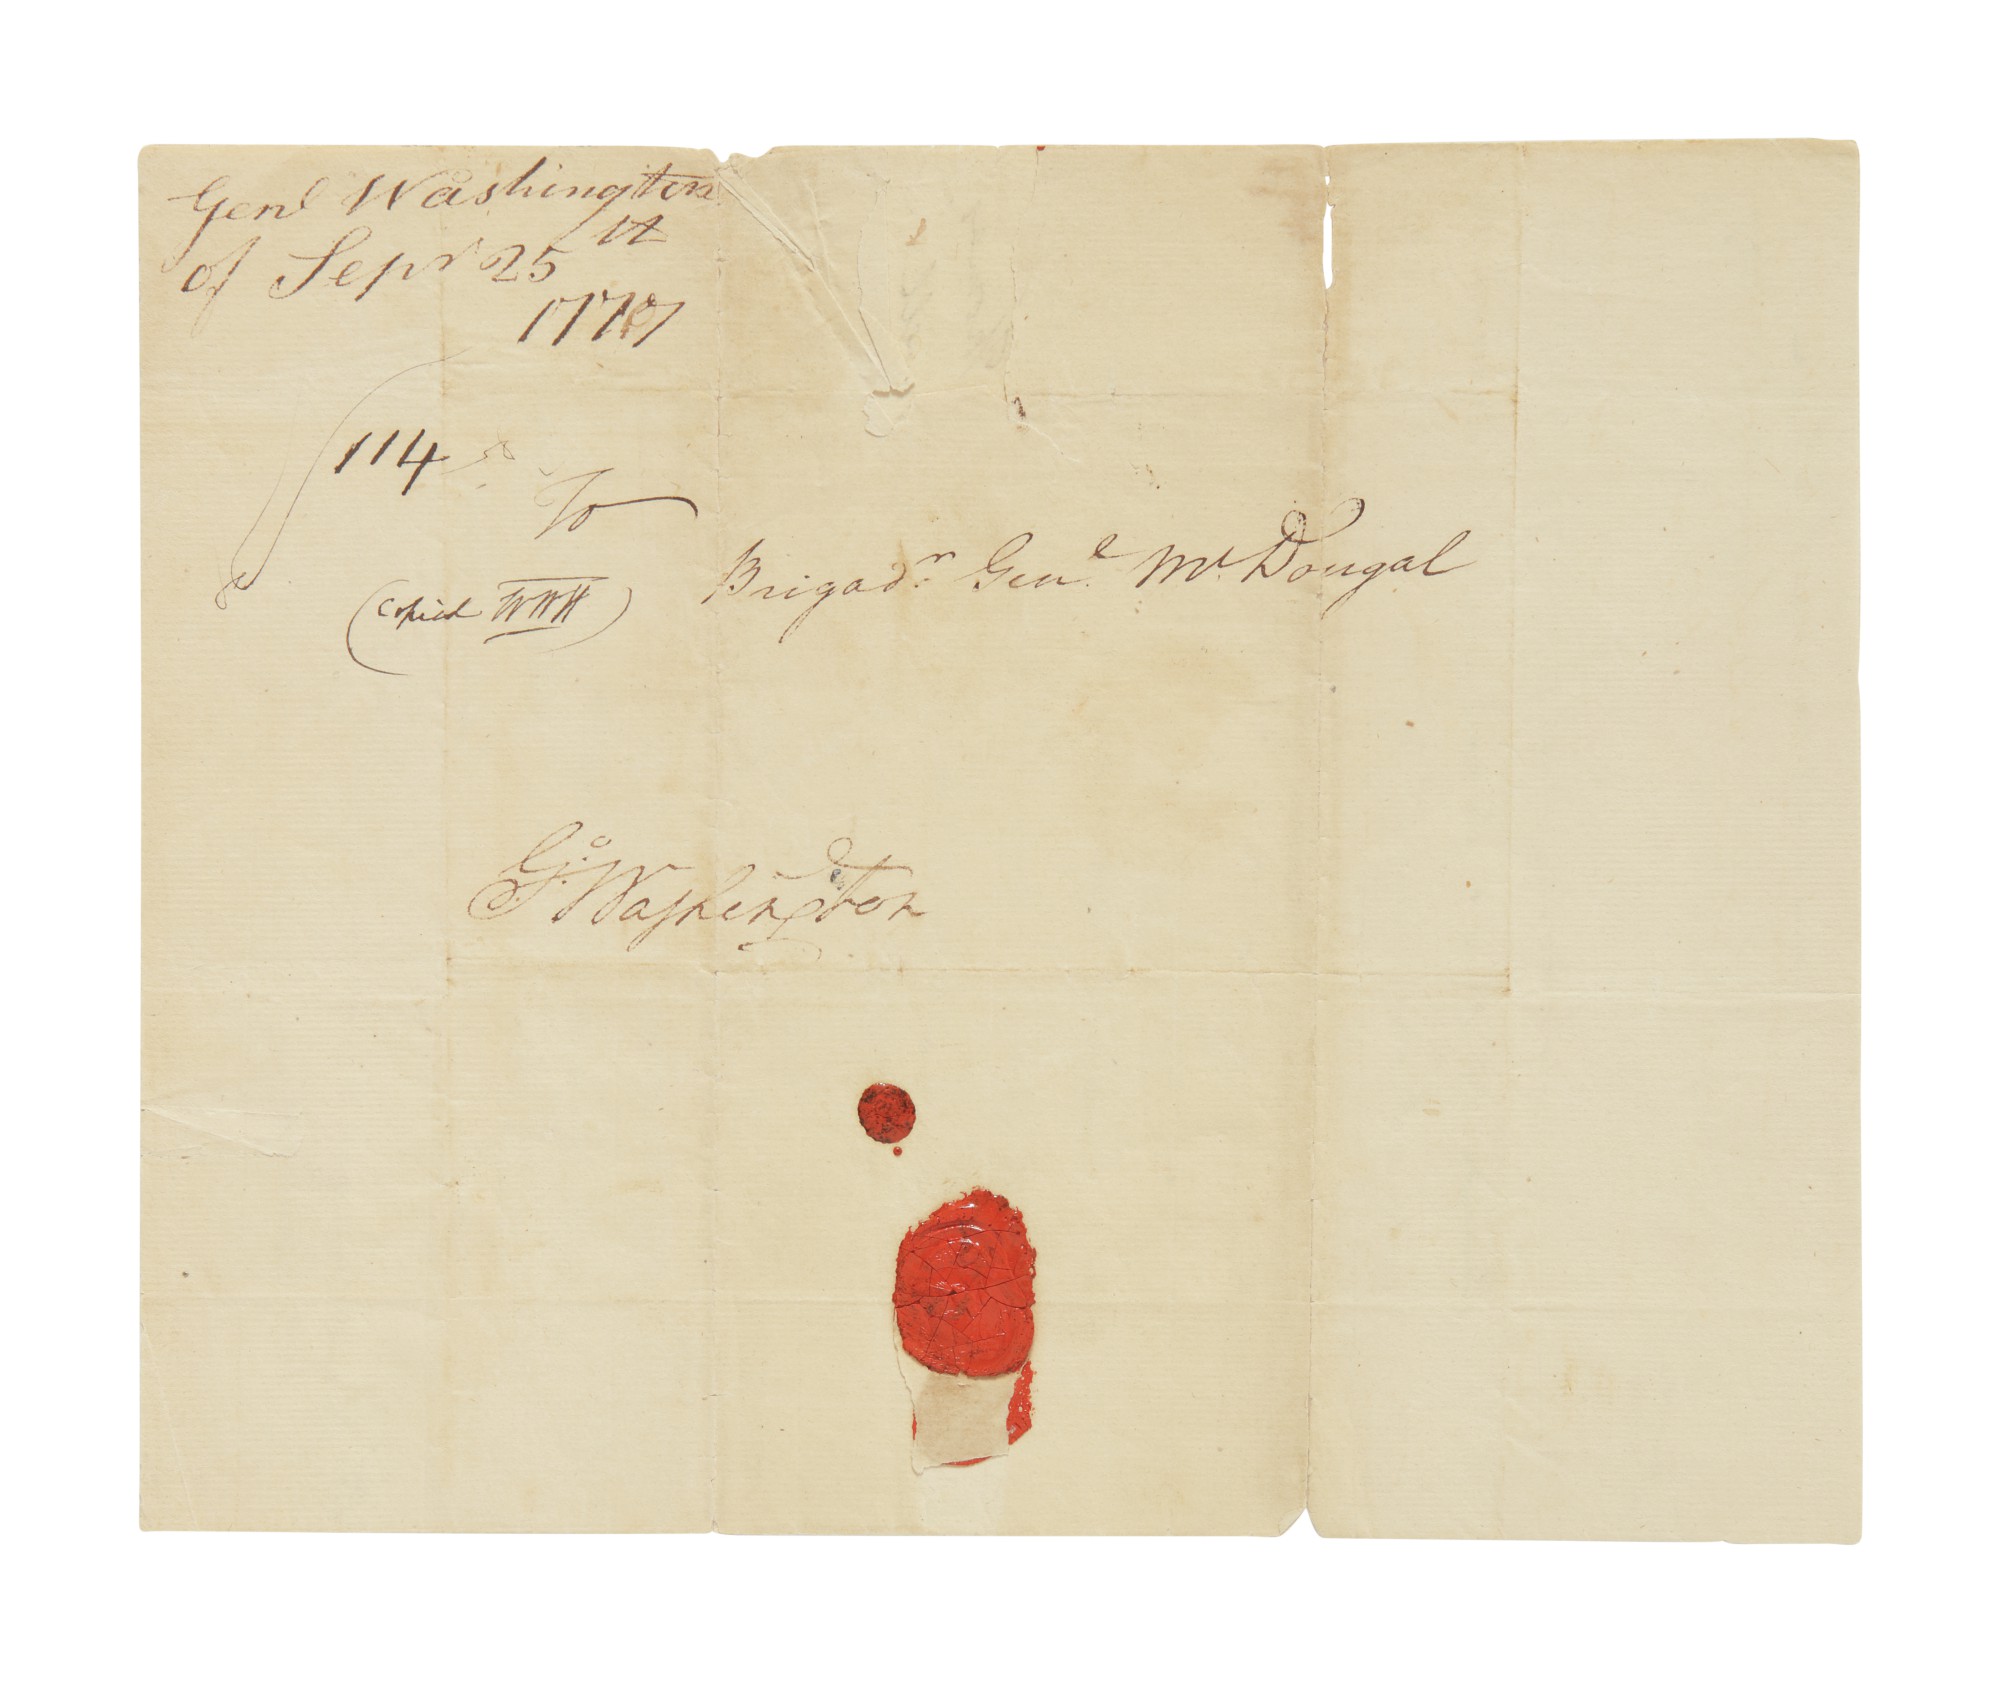 Genl Washington
of Sepr 25th
1777
114
To
Brigadr. Genl. McDougal
(Copied WWH)
Go: Washington